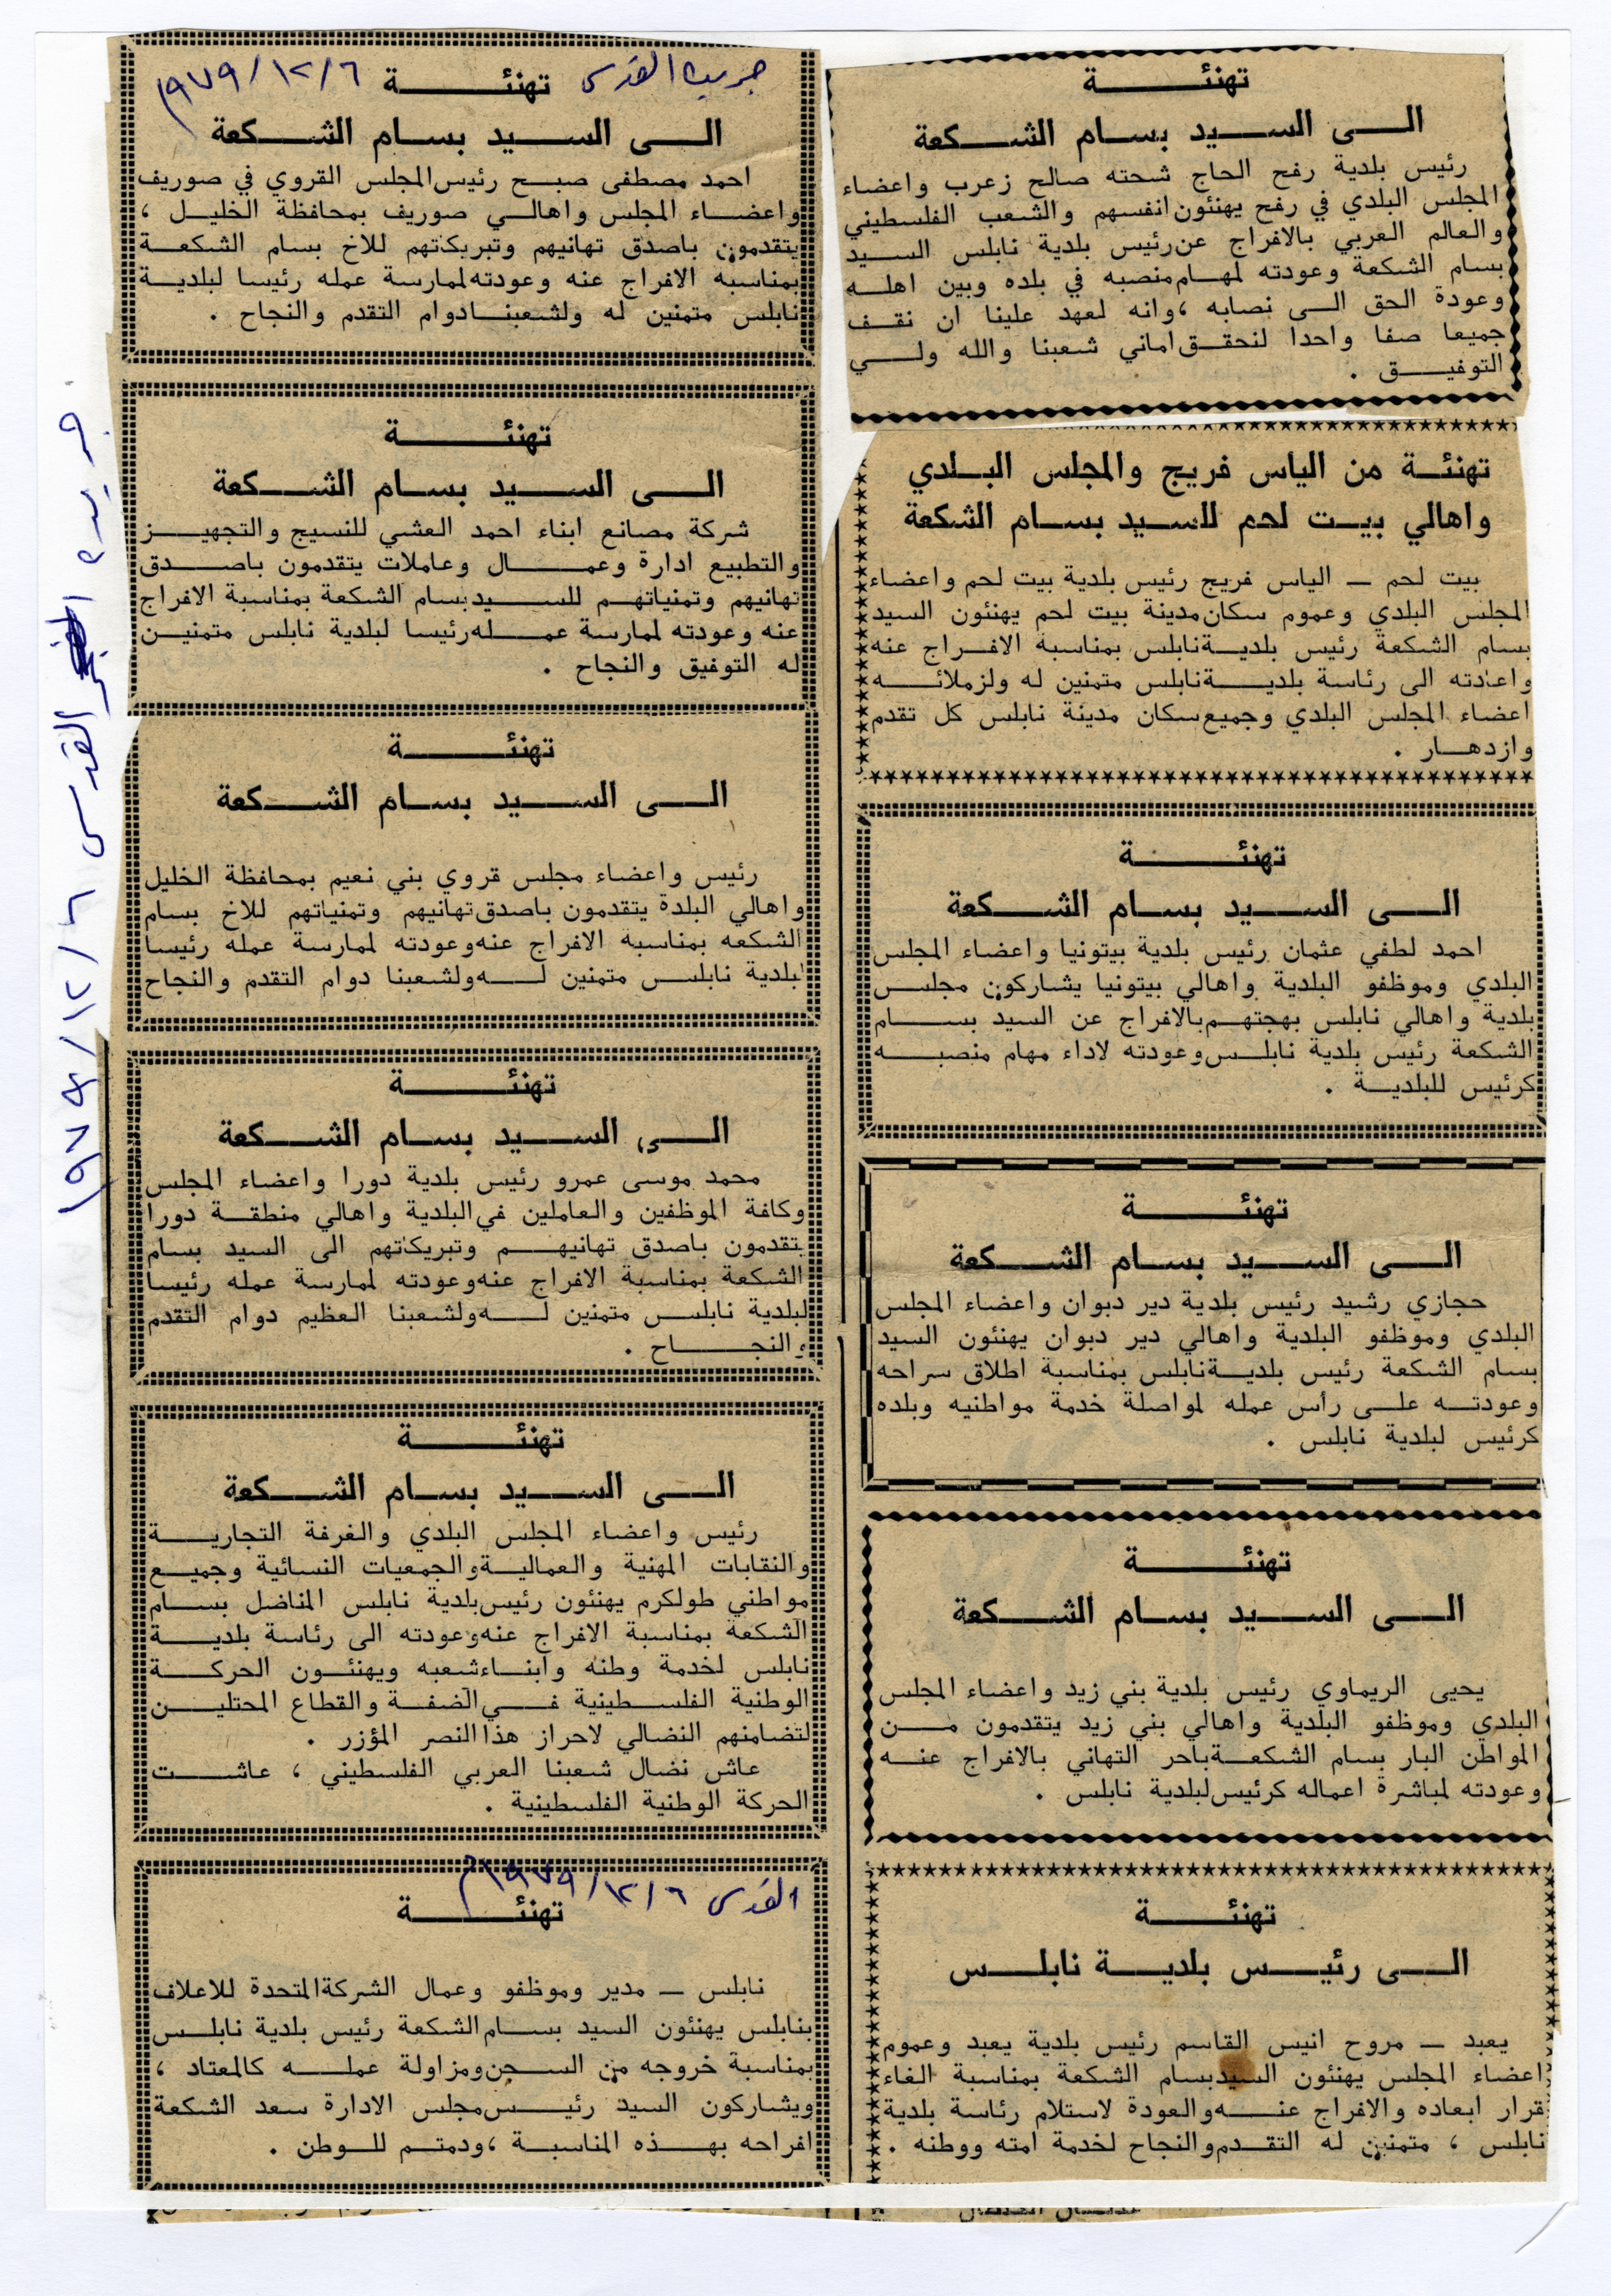 تهنئة
الى السيد بسام الشكعة
رئيس بلدية رفح الحاج شحته صالح زعرب واعضاء
المجلس البلدي في رفح يهنئون انفسهم والشعب الفلسطيني
والعالم العربي بالافراج عن رئيس بلدية نابلس السيد
بسام الشكعة وعودته لمهام منصبه في بلده وبين اهله
وعودة الحق الى نصابه ، وانه لعهد علينا ان نقف
جميعا صفا واحدا لنحقق اماني شعبنا والله ولي
التوفيق .
تهنئة من الياس فريج والمجلس البلدي
واهالي بيت لحم للسيد بسام الشكعة
بيت لحم — الياس فريج رئيس بلدية بيت لحم واعضاء
المجلس البلدي وعموم سكان مدينة بيت لحم يهنئون السيد
بسام الشكعة رئيس بلدية نابلس بمناسبة الافراج عنه
واعادته الى رئاسة بلدية نابلس متمنين له ولزملائه
اعضاء المجلس البلدي وجميع سكان مدينة نابلس كل تقدم
وازدهار .
تهنئة
الى السيد بسام الشكعة
احمد لطفي عثمان رئيس بلدية بيتونيا واعضاء المجلس
البلدي وموظفو البلدية واهالي بيتونيا يشاركون مجلس
بلدية واهالي نابلس بهجتهم بالافراج عن السيد بسام
الشكعة رئيس بلدية نابلس وعودته لاداء مهام منصبه
كرئيس للبلدية .
تهنئة
الى السيد بسام الشكعة
حجازي رشيد رئيس بلدية دير دبوان واعضاء المجلس
البلدي وموظفو البلدية واهالي دير دبوان يهنئون السيد
بسام الشكعة رئيس بلدية نابلس بمناسبة اطلاق سراحه
وعودته على رأس عمله لمواصلة خدمة مواطنيه وبلده
كرئيس لبلدية نابلس .
تهنئة
الى السيد بسام الشكعة
يحيى الريماوي رئيس بلدية بني زيد واعضاء المجلس
البلدي وموظفو البلدية واهالي بني زيد يتقدمون من
المواطن البار بسام الشكعة باحر التهاني بالافراج عنه
وعودته لمباشرة اعماله كرئيس لبلدية نابلس .
تهنئة
الى رئيس بلدية نابلس
يعبد — مروح انيس القاسم رئيس بلدية يعبد وعموم
اعضاء المجلس يهنئون السيد بسام الشكعة بمناسبة الغاء
قرار ابعاده والافراج عنه والعودة لاستلام رئاسة بلدية
نابلس ، متمنين له التقدم والنجاح لخدمة امته ووطنه .
جريدة القدس ١٩٧٩/١٢/٦
تهنئة
الى السيد بسام الشكعة
احمد مصطفى صبح رئيس المجلس القروي في صوريف
واعضاء المجلس واهالي صوريف بمحافظة الخليل ،
يتقدمون باصدق تهانيهم وتبريكاتهم للاخ بسام الشكعة
بمناسبه الافراج عنه وعودته لممارسة عمله رئيسا لبلدية
نابلس متمنين له ولشعبنا دوام التقدم والنجاح .
تهنئة
الى السيد بسام الشكعة
شركة مصانع ابناء احمد العشي للنسيج والتجهيز
والتطبيع ادارة وعمال وعاملات يتقدمون باصدق
تهانيهم وتمنياتهم للسيد بسام الشكعة بمناسبة الافراج
عنه وعودته لممارسة عمله رئيسا لبلدية نابلس متمنين
له التوفيق والنجاح .
تهنئة
الى السيد بسام الشكعة
رئيس واعضاء مجلس قروي بني نعيم بمحافظة الخليل
واهالي البلدة يتقدمون باصدق تهانيهم وتمنياتهم للاخ بسام
الشكعه بمناسبه الافراج عنه وعودته لممارسة عمله رئيسا
لبلدية نابلس متمنين له ولشعبنا دوام التقدم والنجاح
تهنئة
الى السيد بسام الشكعة
محمد موسى عمرو رئيس بلدية دورا واعضاء المجلس
وكافة الموظفين والعاملين في البلدية واهالي منطقة دورا
يتقدمون باصدق تهانيهم وتبريكاتهم الى السيد بسام
الشكعة بمناسبة الافراج عنه وعودته لممارسة عمله رئيسا
لبلدية نابلس متمنين له ولشعبنا العظيم دوام التقدم
والنجاح .
تهنئة
الى السيد بسام الشكعة
رئيس واعضاء المجلس البلدي والغرفة التجارية
والنقابات المهنية والعمالية والجمعيات النسائية وجميع
مواطني طولكرم يهنئون رئيس بلدية نابلس المناضل بسام
الشكعة بمناسبة الافراج عنه وعودته الى رئاسة بلدية
نابلس لخدمة وطنه وابناء شعبه ويهنئون الحركة
الوطنية الفلسطينية في الضفة والقطاع المحتلين
لتضامنهم النضالي لاحراز هذا النصر المؤزر .
عاش نضال شعبنا العربي الفلسطيني ، عاشت
الحركة الوطنية الفلسطينية .
القدس ١٩٧٩/١٢/٦م
تهنئة
نابلس — مدير وموظفو وعمال الشركة المتحدة للاعلاف
بنابلس يهنئون السيد بسام الشكعة رئيس بلدية نابلس
بمناسبة خروجه من السجن ومزاولة عمله كالمعتاد ،
ويشاركون السيد رئيس مجلس الادارة سعد الشكعة
افراحه بهذه المناسبة ، ودمتم للوطن .
جريدة القدس ١٩٧٩/١٢/٦